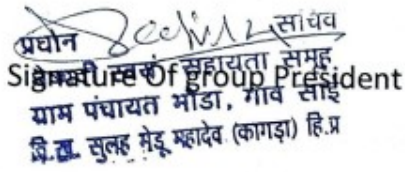 प्रधान सचिव
स्वयं सहायता समूह
Signature Of group President
ग्राम पंचायत भोडा, गांव साई
वि.ख. सुलह मेडू महादेव (कागड़ा) हि.प्र